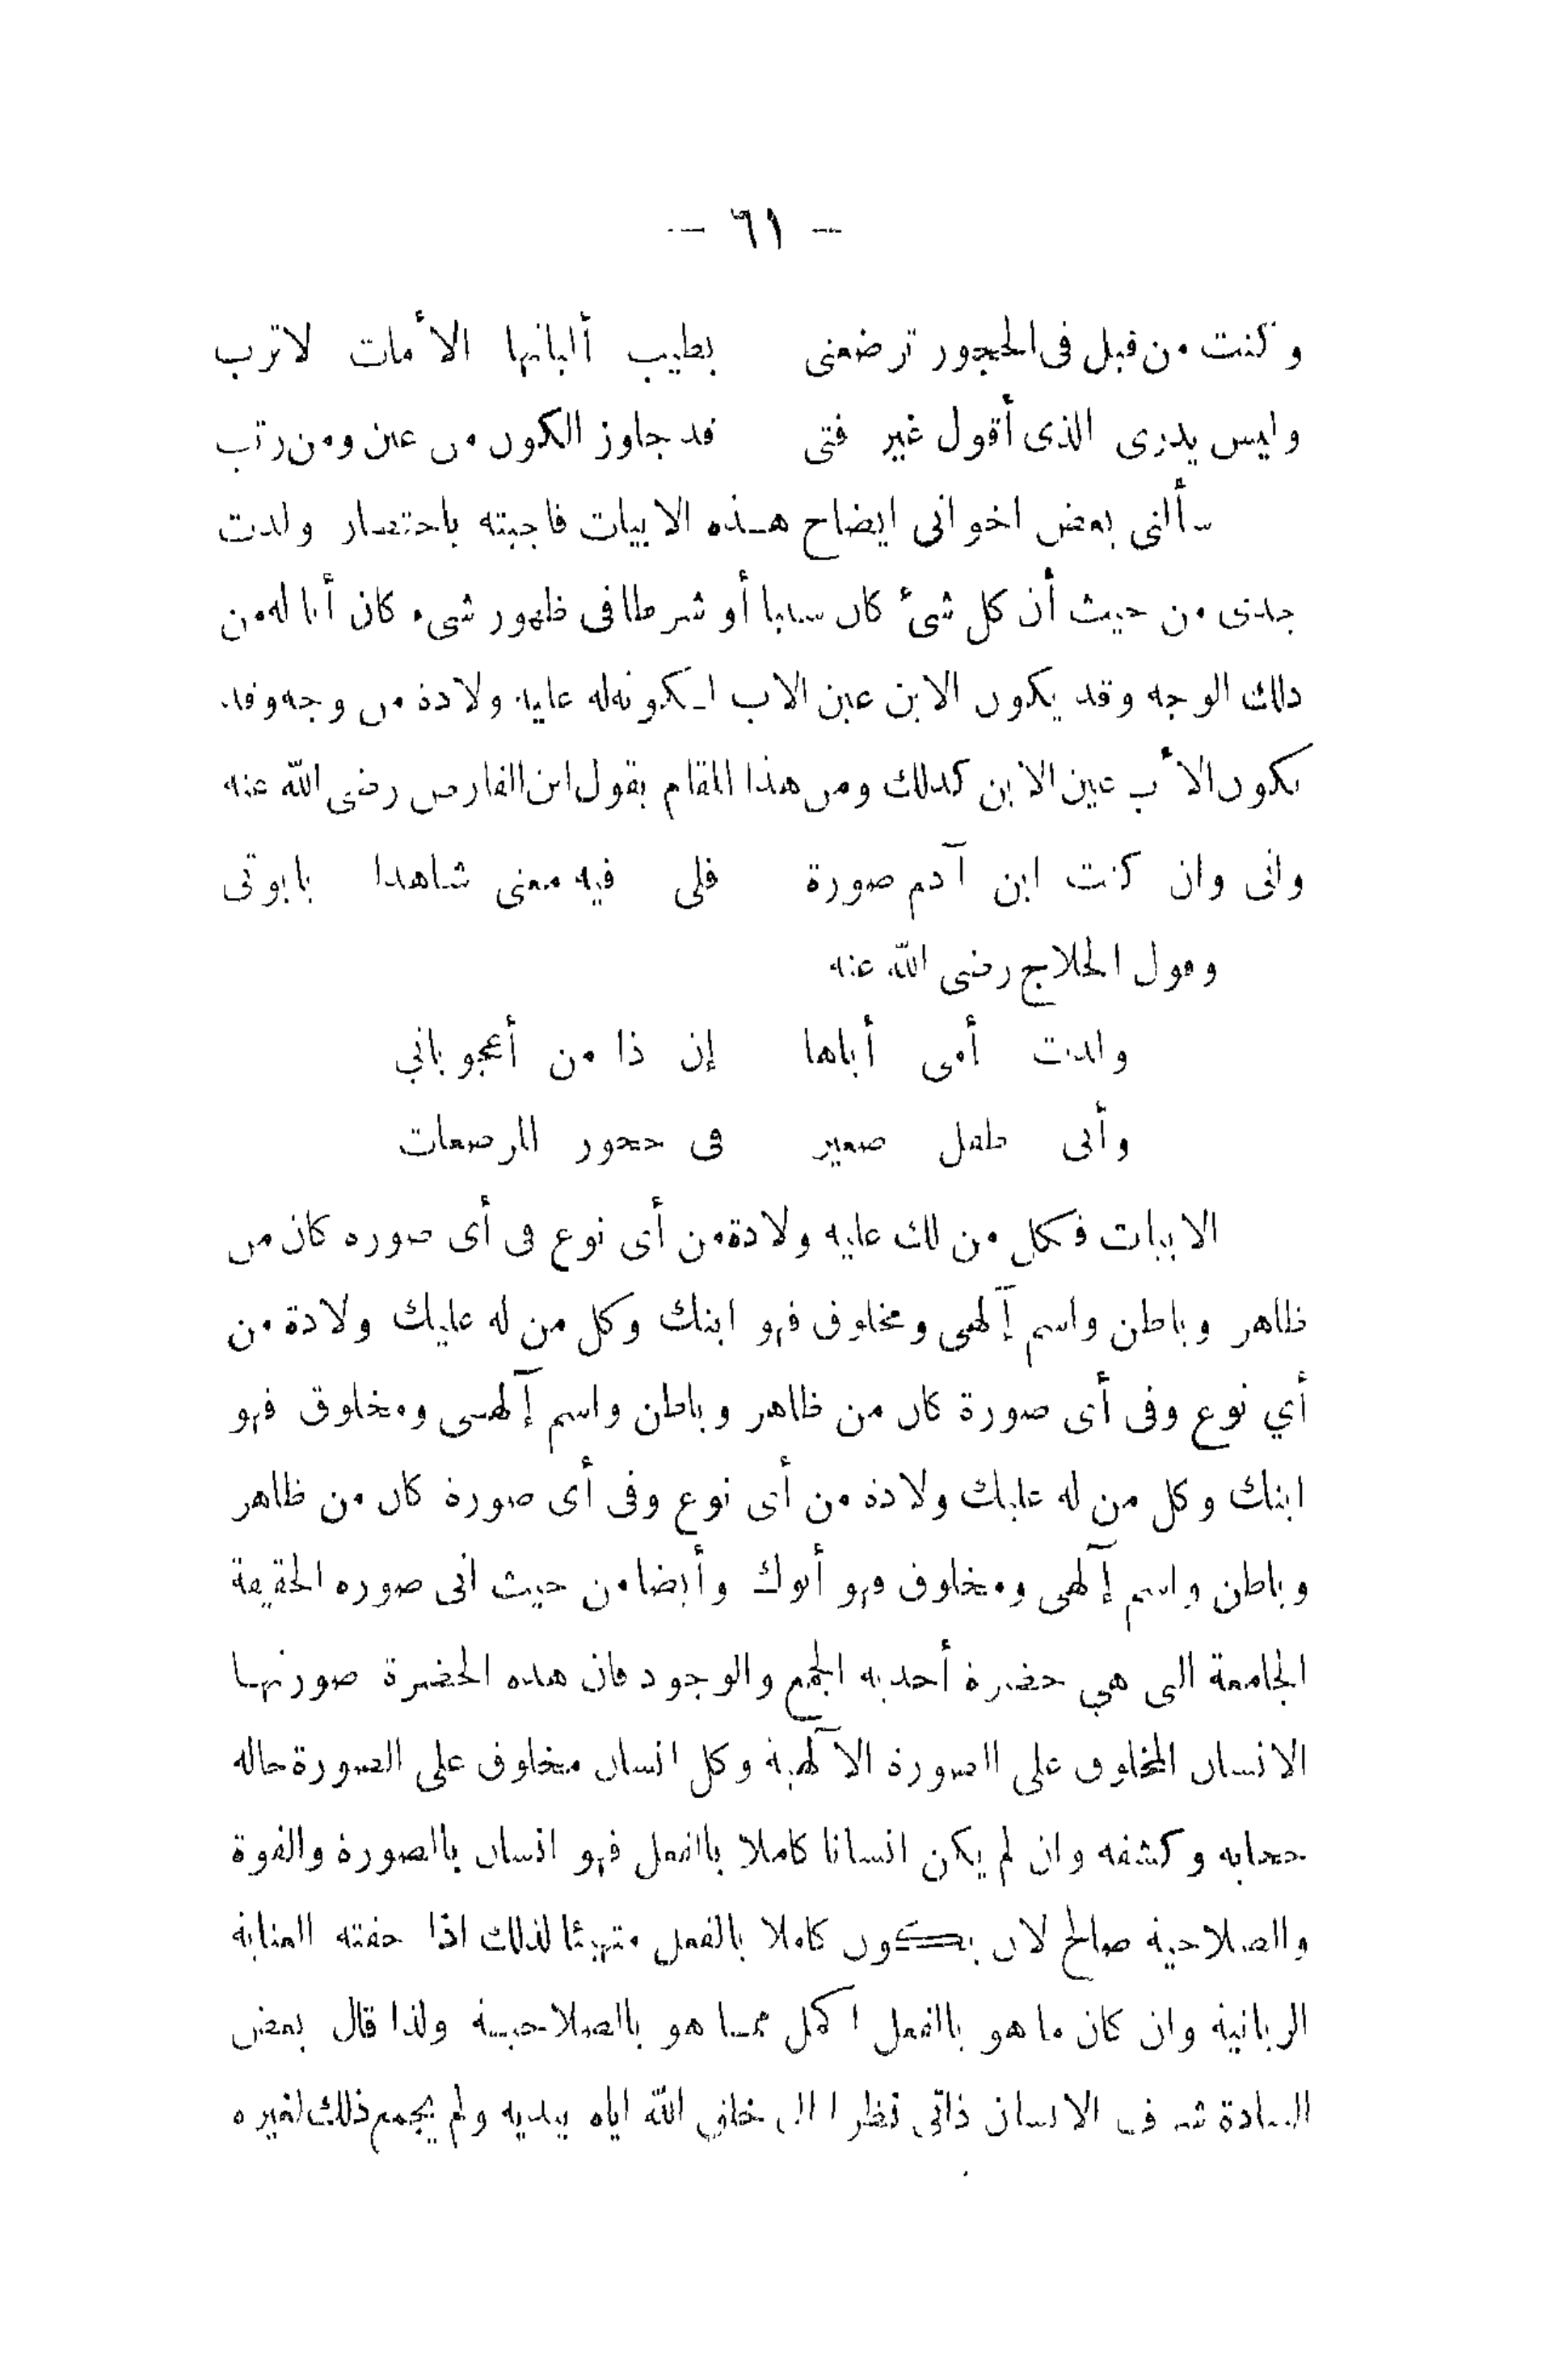 - ٦١ -
وكنت من قبل فى الحجور ترضعنى بطيب ألبانها الأمات لاترب
وليس يدرى الذى أقول غير فتى قد جاوز الكون من عين ومن رتب
سألنى بعض اخوانى ايضاح هذه الابيات فاجبته باختصار ولدت
جدتى من حيث أن كل شئ كان سببا أو شرطا فى ظهور شىء كان أبا له من
ذلك الوجه وقد يكون الابن عين الاب لكونه له عليه ولادة من وجه وقد
يكون الأب عين الابن كذلك ومن هذا المقام يقول ابن الفارض رضى الله عنه
وانى وان كنت ابن آدم صورة فلى فيه معنى شاهدا بابوتى
وقول الحلاج رضى الله عنه
ولدت أمى أباها إن ذا من أعجوباتي
وأبى طفل صغير فى حجور المرضعات
الابيات فكل من لك عليه ولادة من أى نوع فى أى صوره كان من
ظاهر وباطن واسم إآلهى ومخلوق فهو ابنك وكل من له عليك ولادة من
أي نوع وفى أى صورة كان من ظاهر وباطن واسم إآلهى ومخلوق فهو
ابنك وكل من له عليك ولادة من أى نوع وفى أى صورة كان من ظاهر
وباطن واسم إآلهى ومخلوق فهو أبوك وأيضا من حيث انى صوره الحقيقة
الجامعة التى هي حضرة أحديه الجمع والوجود فان هده الحضرة صورتها
الانسان المخلوق على الصورة الالآهية وكل انسان مخلوق على الصورة حاله
حجابه وكشفه وان لم يكن انسانا كاملا بالفعل فهو انسان بالصورة والقوة
والصلاحية صالح لان يكون كاملا بالفعل متهيئا لذلك اذا حفته العناية
الربانية وان كان ما هو بالفعل اكمل مما هو بالصلاحية ولذا قال بعض
السادة شرف الانسان ذاتى نظرا الى خلق الله اياه بيديه ولم يجمع ذلك لغيره